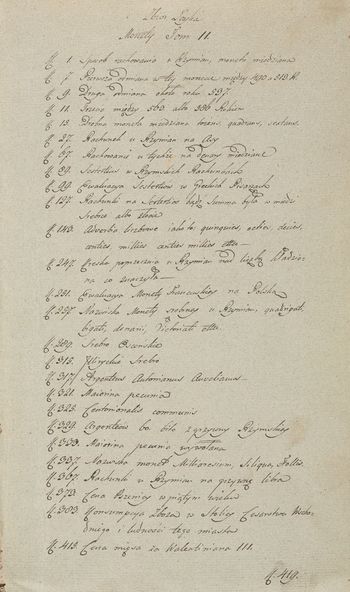 Zbior
Monety Tom II.
K. 1 Sposob rachowania u Rzymian, moneta miedziana
K. 7 Pierwsza odmiana w tey monecie między 490 a 513 R.
K. 9. Druga odmiana około roku 537.
K. 11. Trzecia między 560. albo 586 Rokiem
K. 13. Drobna moneta miedziana triens, quadrans, sextans.
K. 27. Rachunek u Rzymian na Asy
K. 67. Rachowano w tysiące na denary miedziane
K. 89. Sestertius w Rzymskich Rachunkach
K. 99. Ewaluacya Sestertiow w Greckich Pisarzach
K. 137. Rachunki na Sestertios bądź Summa była w miedzi
Srebrze albo złocie
K. 143. Adverba liczbowe iako to: quinquies, octies, decies,
centies millies centies millies etc.
K. 247. Kreska poprzeczna u Rzymian nad liczbą kładziona
na co znaczyła
K. 251. Ewaluacya Monety Francuskiey na Polską
K. 257. Nazwiska Monety srebrney u Rzymian, quadrigati,
bigati, denarii, Victoriati etc.
K. 289. Srebro Oscenskie
K. 315. Illiryckie Srebro
K. 317. Argenteus Antonianus Aurelianus
K. 321. Maiorina pecunia
K. 325. Centenionalis communis
K. 329. Argenteow 60 biło z grzywny Rzymskiey
K. 333. Maiorina pecunia wywołana
K. 337. Nazwiska monet Milliarensium, Siliqua, Follis.
K. 367. Rachunki u Rzymian na grzywnę libra
K. 373. Cena Pszenicy w piątym wieku
K. 383. Konsumpcya Zboża w Stolicy Cesarstwa Wscho-
dniego i ludności tego miasta
K. 413. Cena mięsa za Walentiniana III.
K. 419.